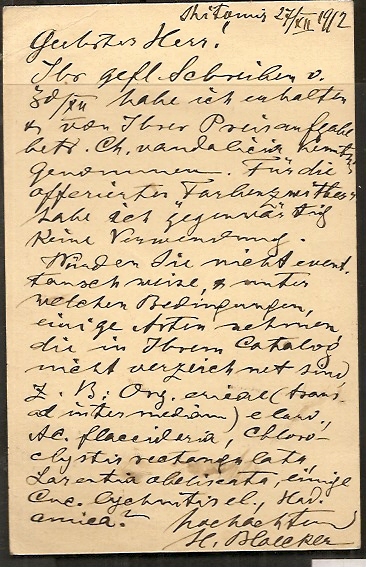 Shitomir 27/XII 1912
Geehrter Herr!
Ihr gefl. Schreiben v.
30/XII habe ich erhalten
& von Ihrer Preisaufgabe
betr. Ch. vandalicia
genommen. Für die
offerierten
habe ich gegenwärtig
keine Verwendung.
Würden Sie nicht event.
tauschweise, & unter
welchen Bedingungen,
einige Arten nehmen
die in Ihrem Catalog
nicht verzeichnet sind
z. B: Org. ericae (trans.
ad intermediam)
Ac. flaccidaria, Chloro-
clystis rectangulata,
Larentia obeliscata, einige
Cuc. lychnitis el., Had.
amica?
Hochachtend
H. Bloecker